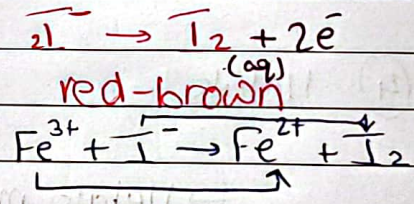 2I⁻ → I₂ + 2e⁻
(aq)
red-brown
Fe³⁺ + I⁻ → Fe²⁺ + I₂